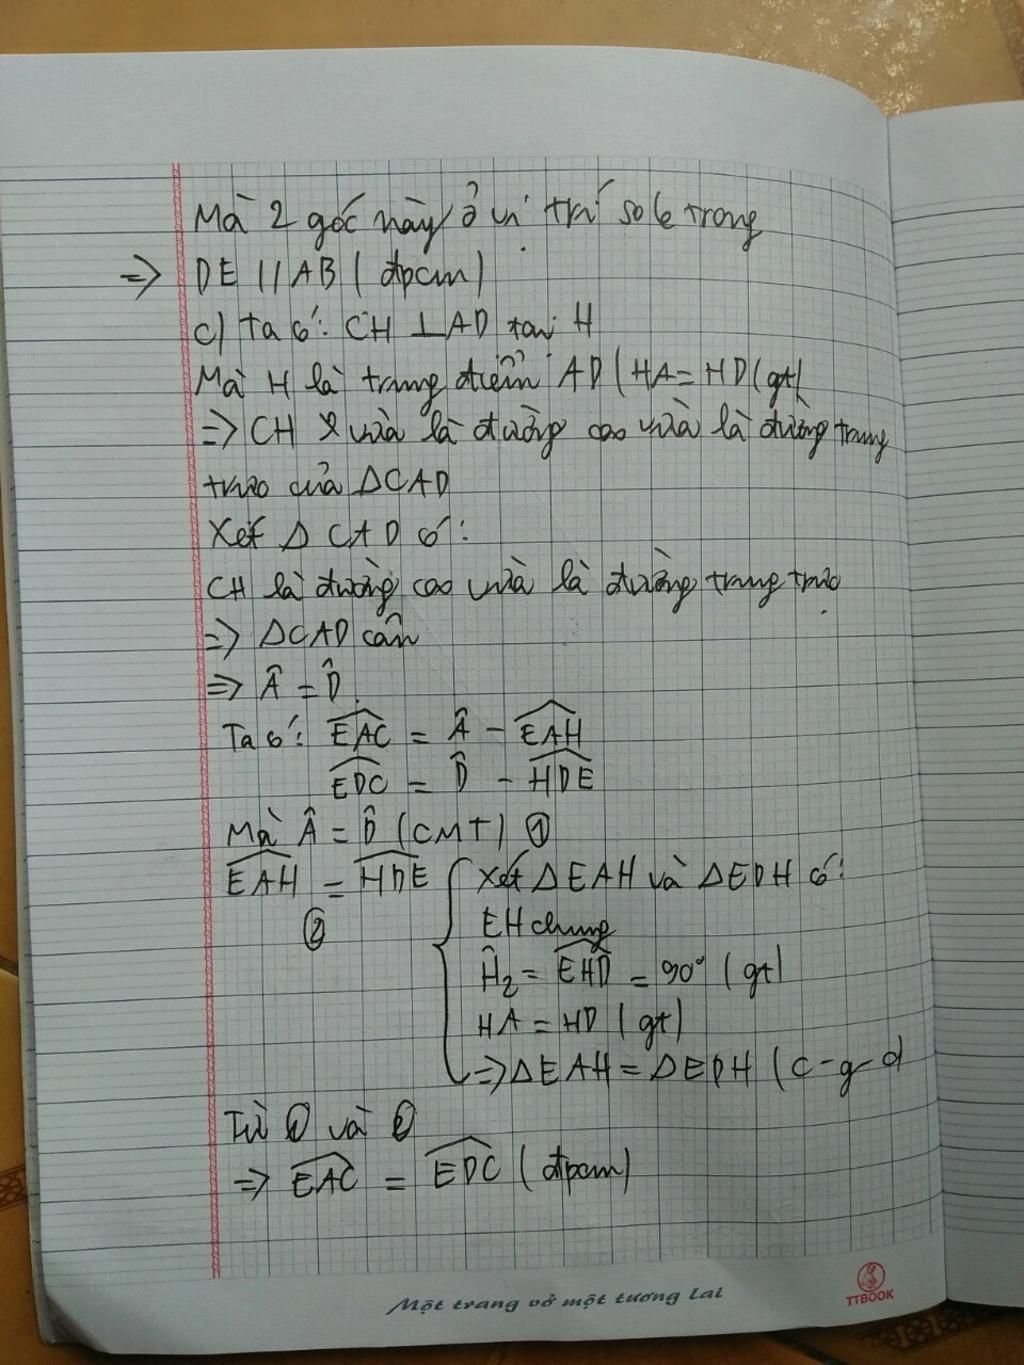 Mà 2 góc này ở vị trí so le trong
=> DE // AB ( đpcm)
c) Ta có: CH ⊥ AD tại H
Mà H là trung điểm AD ( HA = HD (gt)
=> CH vừa là đường cao vừa là đường trung
trực của ΔCAD
Xét Δ CAD có:
CH là đường cao vừa là đường trung trực
=> ΔCAD cân
=> Â = D̂
Ta có: \widehat{EAC} = Â - \widehat{EAH}
\widehat{EDC} = D̂ - \widehat{HDE}
Mà Â = D̂ (CMT) ①
\widehat{EAH} = \widehat{HDE} { Xét ΔEAH và ΔEDH có:
②
EH chung
Ĥ₂ = \widehat{EHD} = 90° ( gt)
HA = HD ( gt)
=> ΔEAH = ΔEDH ( c-g-c)
Từ ① và ②
=> \widehat{EAC} = \widehat{EDC} ( đpcm)
Một trang vở một tương lai
TTBOOK